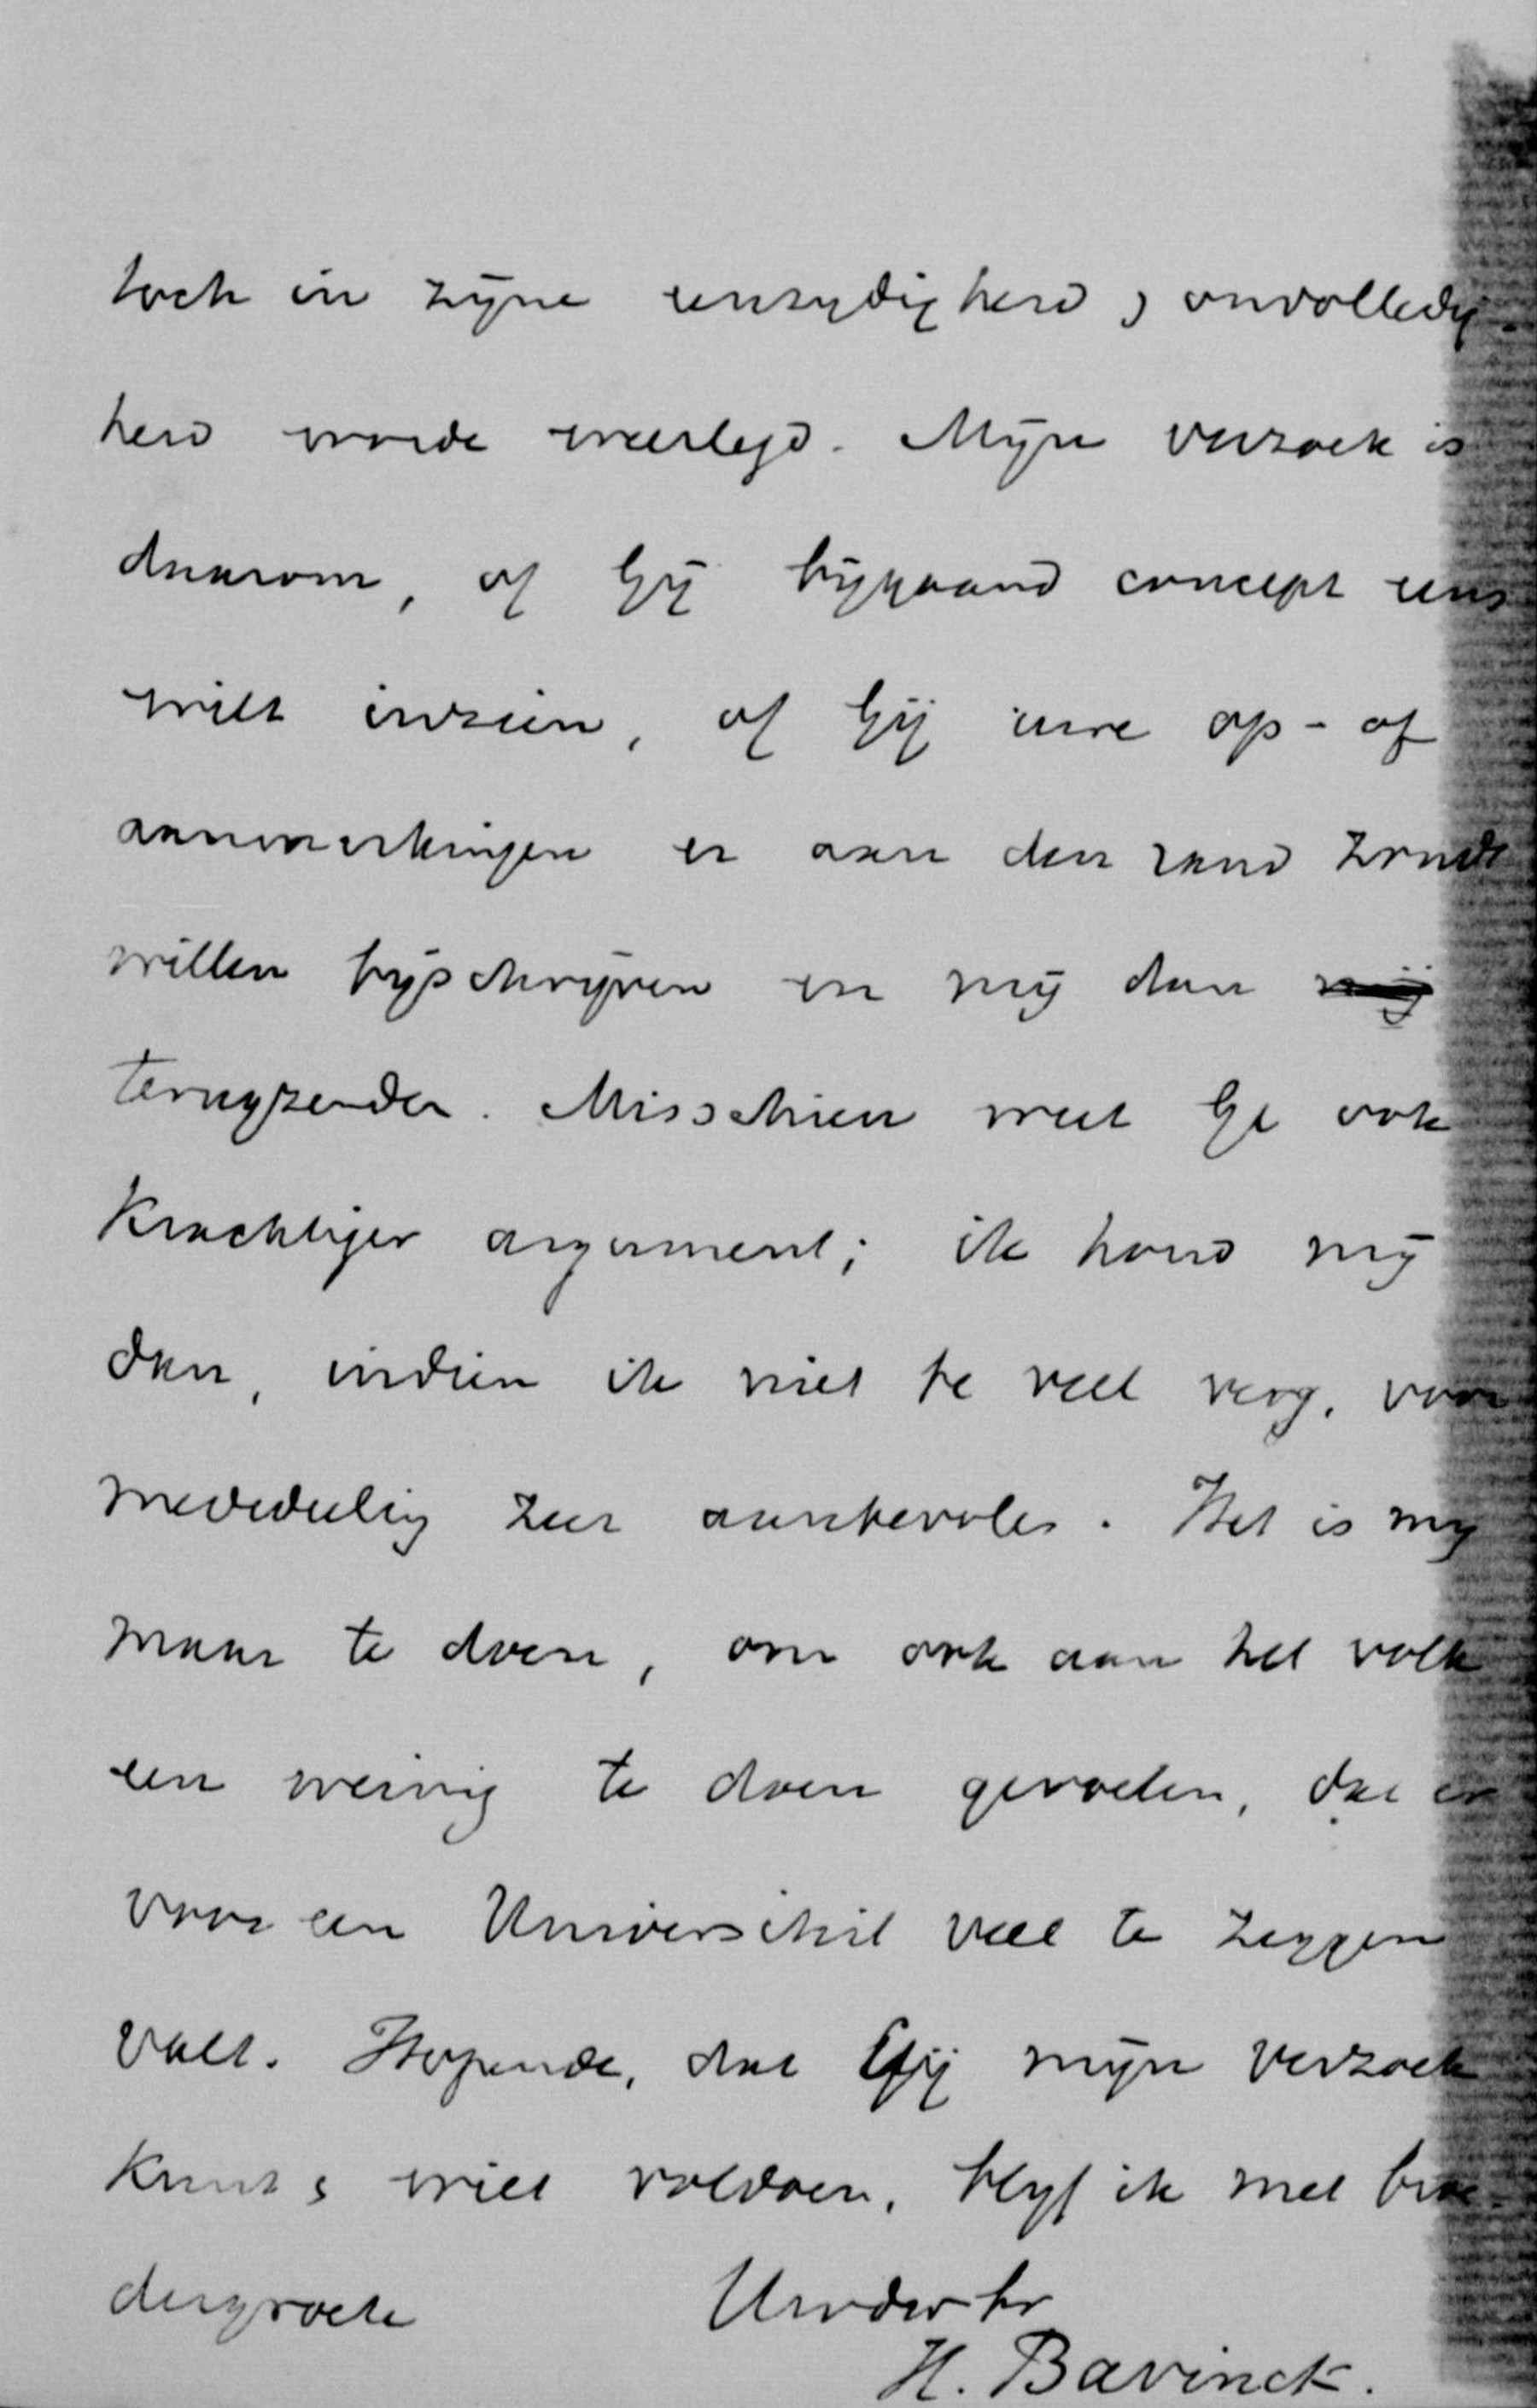 toch in zijne eenzijdigheid & onvolledig-
heid worde weerlegd. Mijn verzoek is
daarom, of Gij bijgaand concept eens
wilt inzien, of Gij uwe op- of
aanmerkingen er aan den rand zoudt
willen bijschrijven en mij dan mij
terugzenden. Misschien weet Ge ook
krachtiger argument; ik houd mij
dan, indien ik niet te veel verg, voor
mededeeling zeer aanbevolen. Het is mij
maar te doen, om ook aan het volk
een weinig te doen gevoelen, dat er
voor een Universiteit veel te zeggen
valt. Hopende, dat Gij mijn verzoek
kunt & wilt voldoen, blijf ik met broe-
dergroete Uw dw br
H. Bavinck.